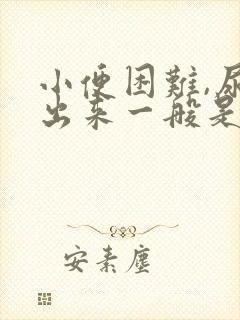 小便困難,尿
出来一般是
安素塵